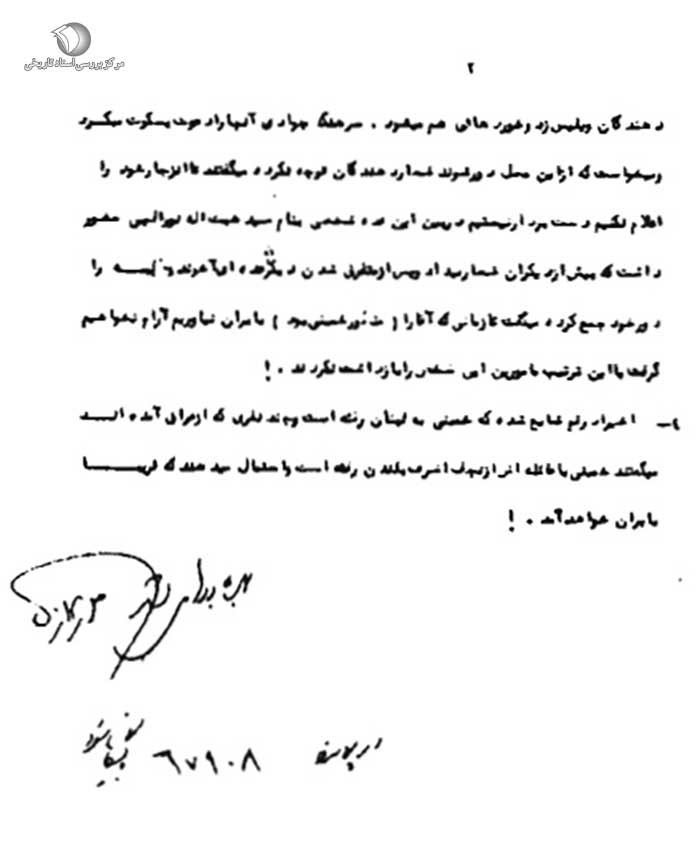 مرکز بررسی اسناد تاریخی
۲
دهندگان وپلیس زد وخورد هائی هم میشود . سرهنگ جوادی آنهارا دعوت بسکوت میکرد
ومیخواست که ازاین محل دورشوند شعاردهندگان توجه نکرده میگفتند تا انزجارخود را
اعلام نکنیم دست بردارنیستیم دربین این عده شخصی بنام سید هبت اله نورالهی حضور
داشت که بیش ازدیگران شعارمیداد وپس ازمتفرق شدن دیگران عده ای آخوند و را
دورخود جمع کرده میگفت تازمانی که آقارا ( منظورخمینی بود ) بایران نیاوریم آرام نخواهیم
گرفت بااین ترتیب مامورین این شخص رابازداشت نکردند . !
۴ـ اخیرا در قم شایع شده که خمینی به لبنان رفته است وچند نفری که ازعراق آمده انـــد
میگفتند خمینی باعائله اش ازنجف اشرف بلندن رفته است واحتمال میدهند که قریبـــا
بایران خواهد آمد . !
بهره برداری
در پرونده ۶۷۹۰۸
بایگانی شود